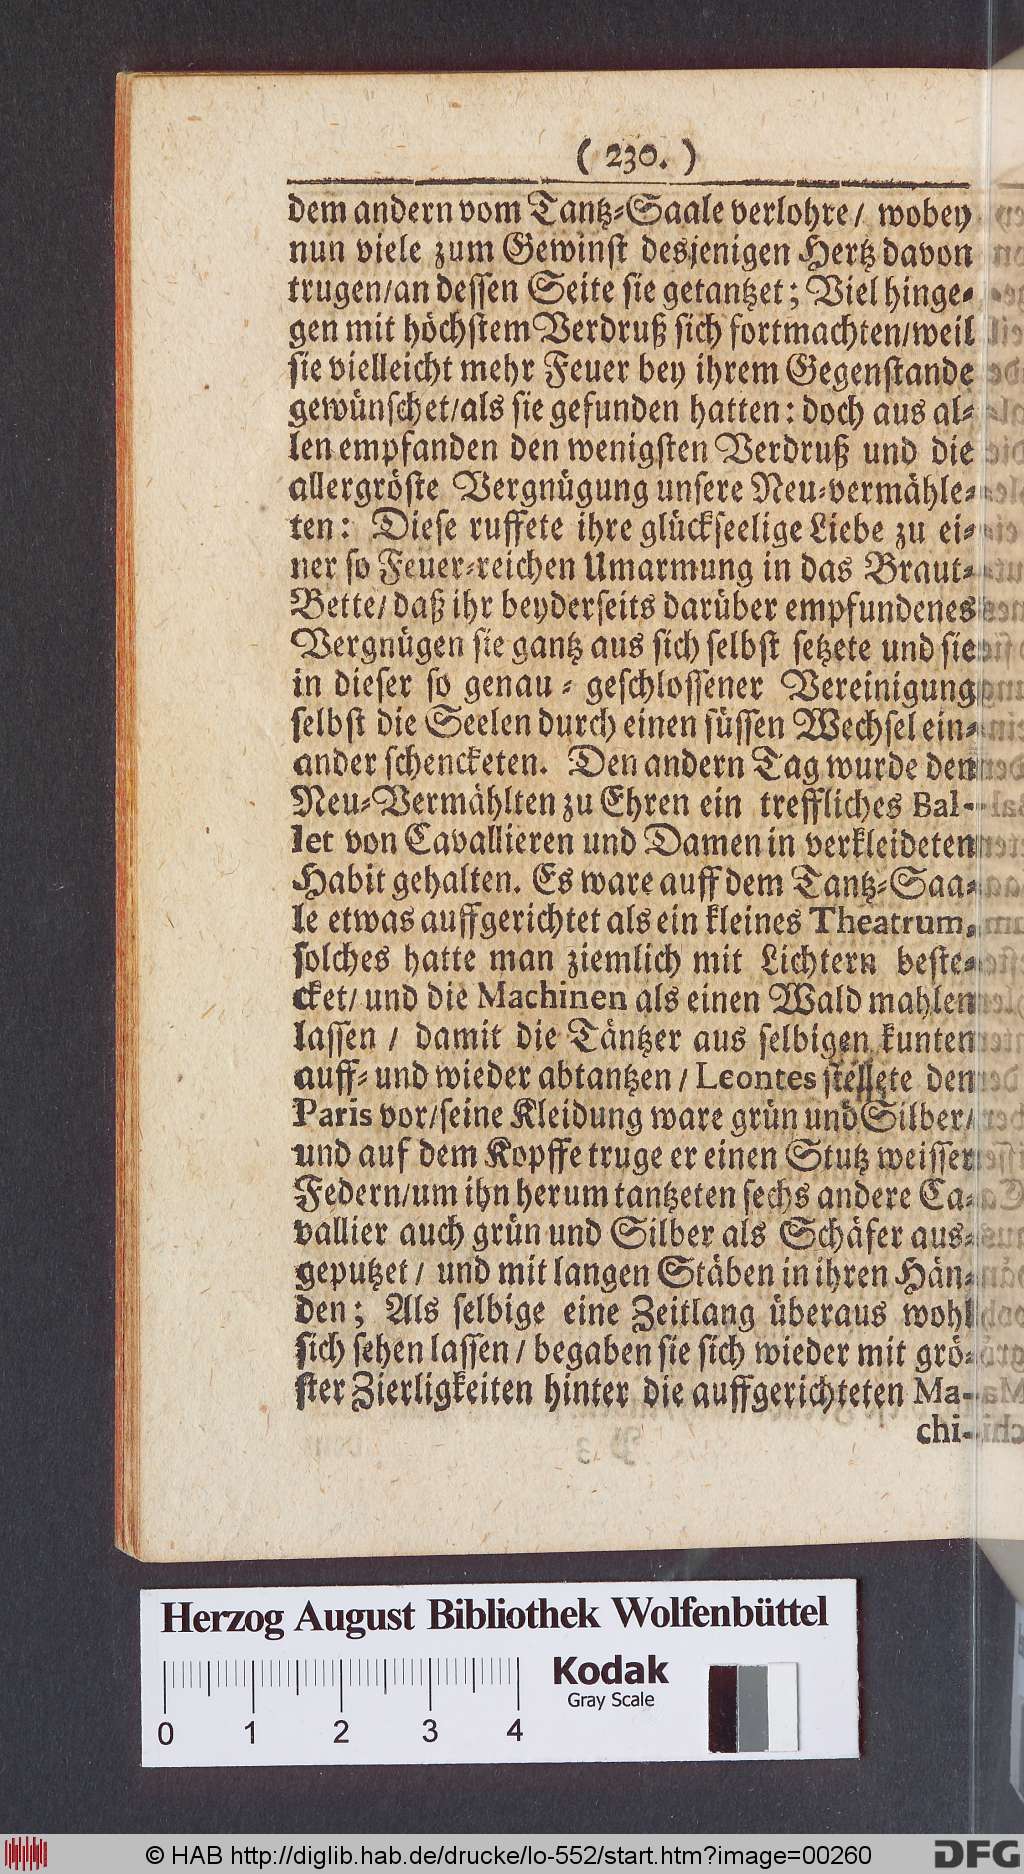 ( 230. )
dem andern vom Tantz-Saale verlohre / wobey
nun viele zum Gewinst desjenigen Hertz davon
trugen/an dessen Seite sie getantzet; Viel hinge-
gen mit höchstem Verdruß sich fortmachten/weil
sie vielleicht mehr Feuer bey ihrem Gegenstande
gewünschet/als sie gefunden hatten: doch aus al-
len empfanden den wenigsten Verdruß und die
allergröste Vergnügung unsere Neu-vermähle-
ten: Diese ruffete ihre glückseelige Liebe zu ei-
ner so Feuer-reichen Umarmung in das Braut-
Bette/ daß ihr beyderseits darüber empfundenes
Vergnügen sie gantz aus sich selbst setzete und sie
in dieser so genau - geschlossener Vereinigung
selbst die Seelen durch einen süssen Wechsel ein-
ander schencketen. Den andern Tag wurde den
Neu-Vermählten zu Ehren ein treffliches Bal-
let von Cavallieren und Damen in verkleideten
Habit gehalten. Es ware auff dem Tantz-Saa-
le etwas auffgerichtet als ein kleines Theatrum,
solches hatte man ziemlich mit Lichtern beste-
cket/ und die Machinen als einen Wald mahlen
lassen / damit die Täntzer aus selbigen kunten
auff- und wieder abtantzen / Leontes stellete den
Paris vor/seine Kleidung ware grün und Silber/
und auf dem Kopffe truge er einen Stutz weisser
Federn/um ihn herum tantzeten sechs andere Ca-
vallier auch grün und Silber als Schäfer aus-
geputzet / und mit langen Stäben in ihren Hän-
den; Als selbige eine Zeitlang überaus wohl
sich sehen lassen / begaben sie sich wieder mit grö-
ster Zierligkeiten hinter die auffgerichteten Ma-
chi-
Herzog August Bibliothek Wolfenbüttel
Kodak
Gray Scale
0 1 2 3 4
© HAB http://diglib.hab.de/drucke/lo-552/start.htm?image=00260
DFG